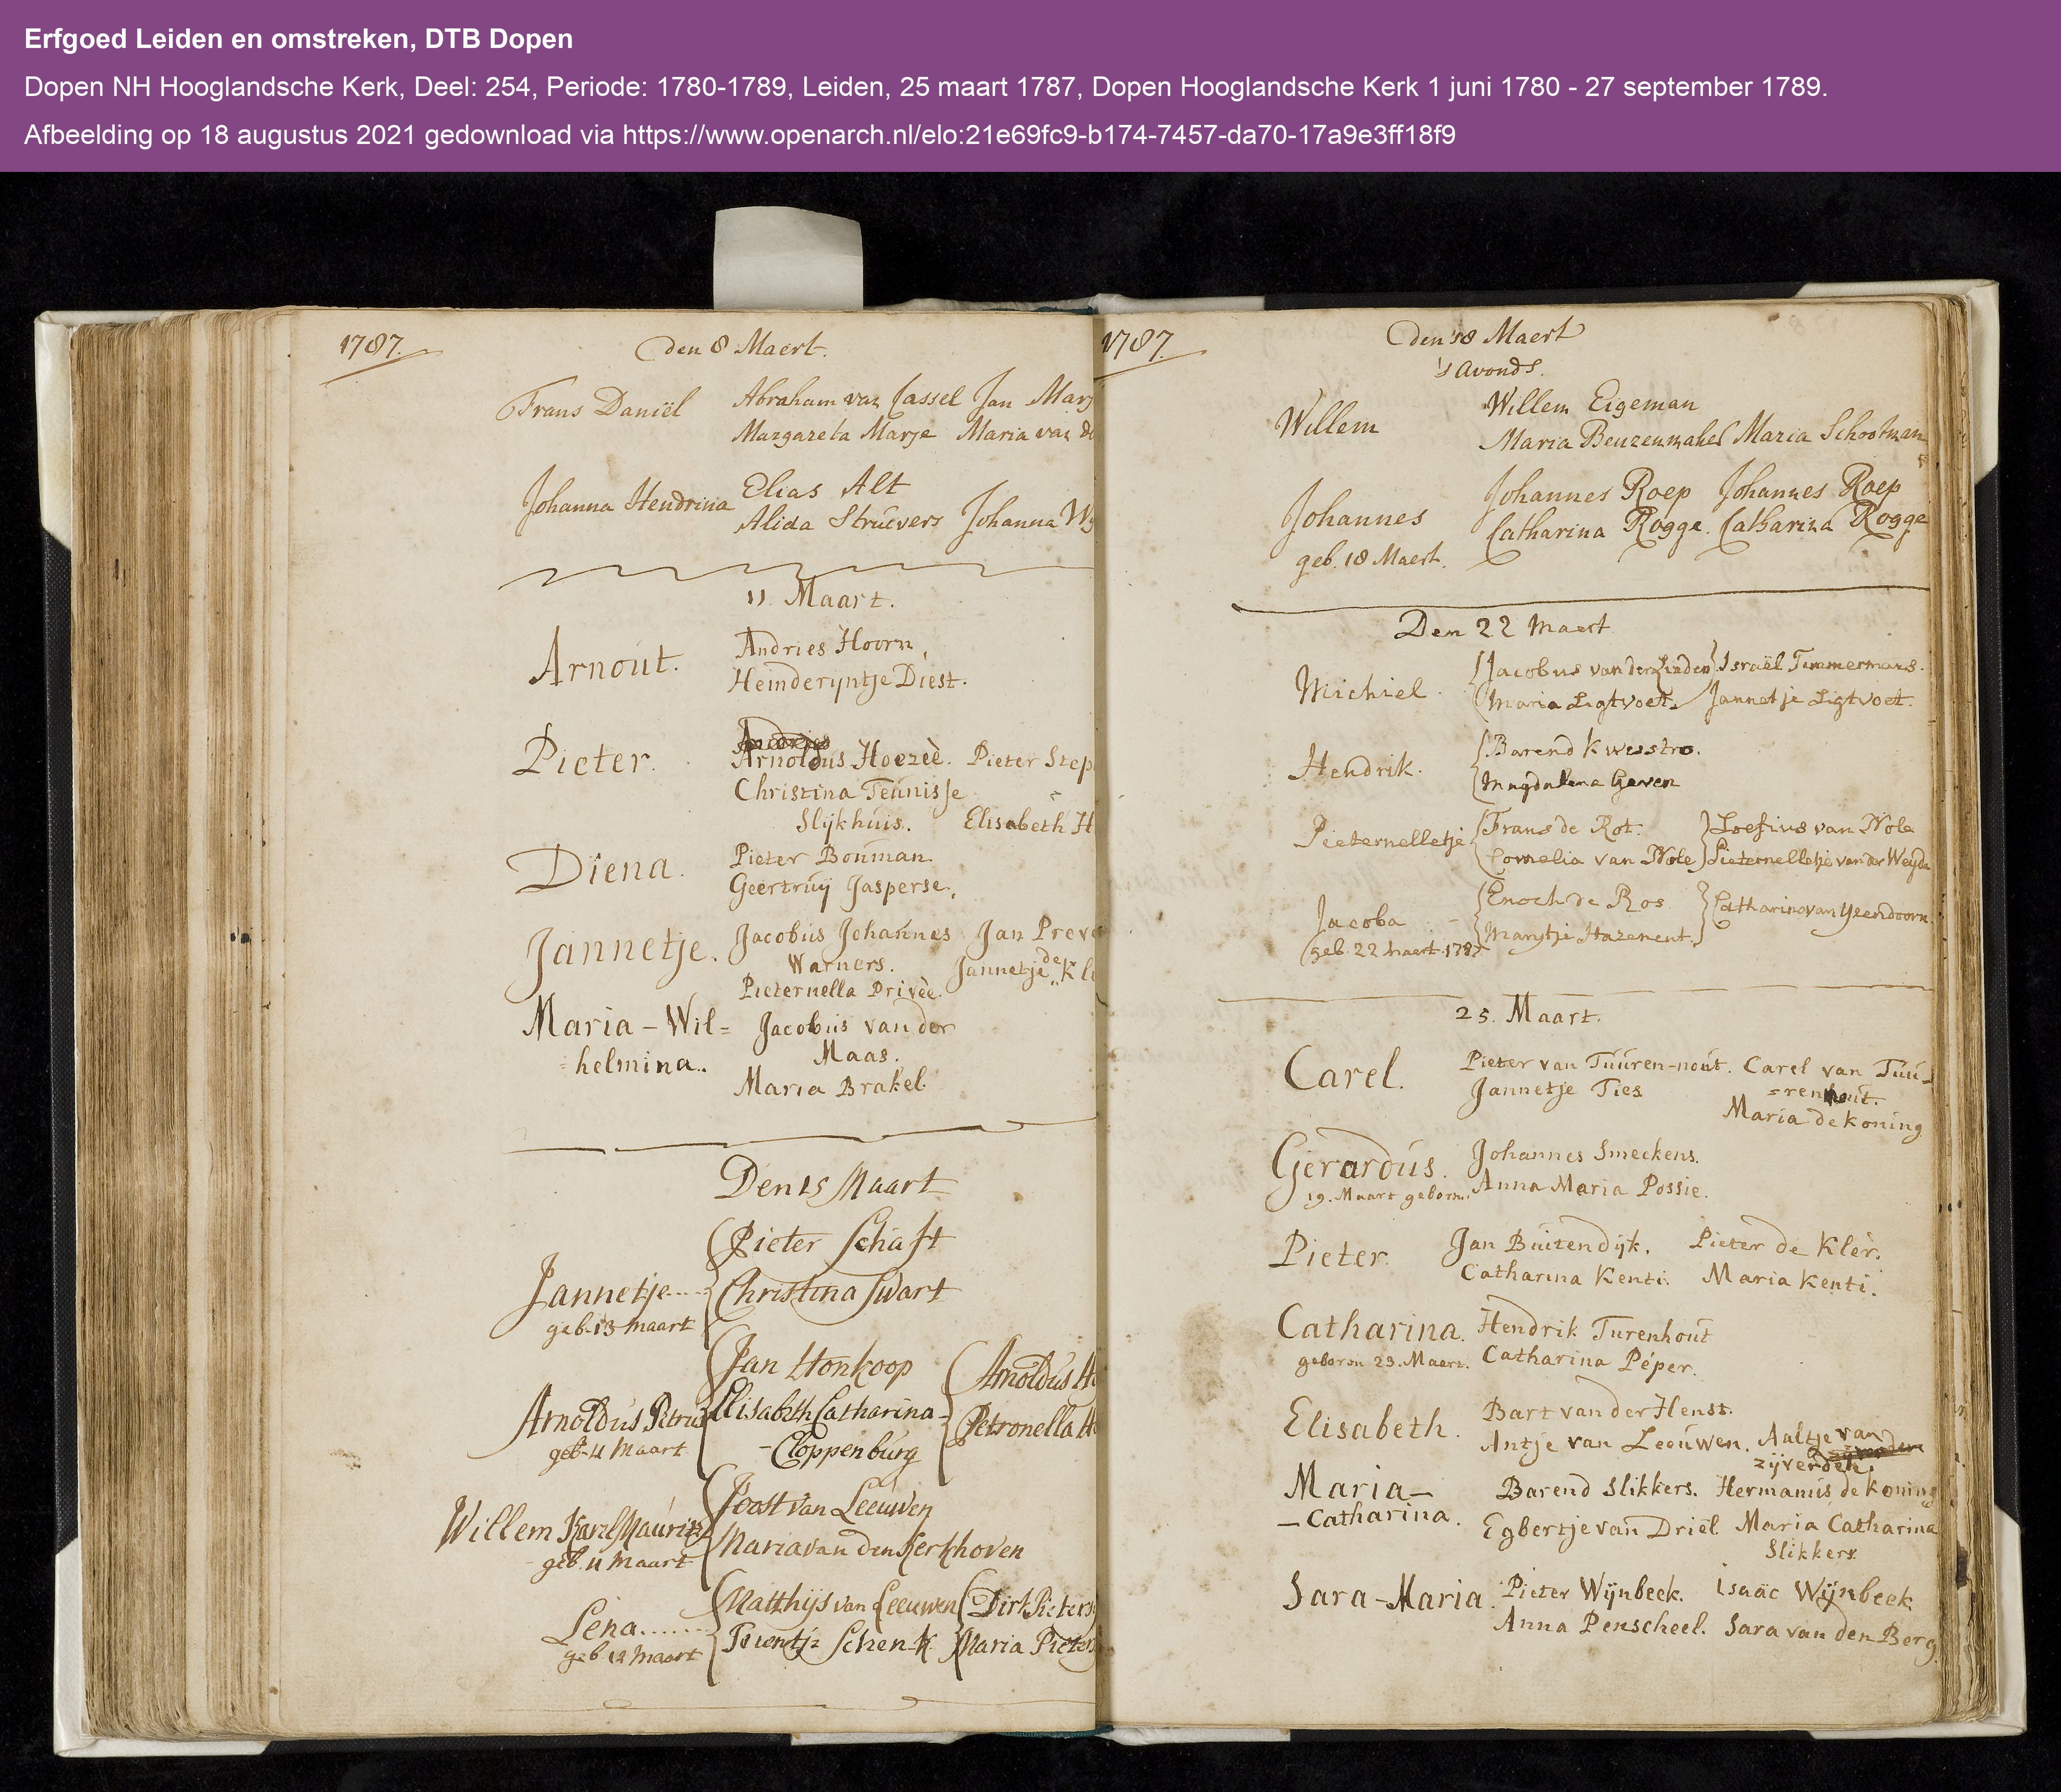 Erfgoed Leiden en omstreken, DTB Dopen
Dopen NH Hooglandsche Kerk, Deel: 254, Periode: 1780-1789, Leiden, 25 maart 1787, Dopen Hooglandsche Kerk 1 juni 1780 - 27 september 1789.
Afbeelding op 18 augustus 2021 gedownload via https://www.openarch.nl/elo:21e69fc9-b174-7457-da70-17a9e3ff18f9
1787. Den 8 Maert.
Frans Daniël Abraham van Cassel Jan
Margareta Marje Maria van
Johanna Hendrina Elias Alt
Alida Struevers Johanna
11 Maart.
Arnout. Andries Hoorn,
Heinderyntje Diest.
Pieter. Arnoldus Hoezeè. Pieter
Christina Teunisse
Slijkhuis. Elisabeth
Diena. Pieter Bouman
Geertruij Jasperse,
Jannetje. Jacobus Johannes Jan
Warners. Jannetje de
Pieternella Privèè.
Maria - Wil= Jacobus van der
=helmina.. Maas.
Maria Brakel.
Den 15 Maart
Pieter Schaft
Jannetje.... Christina Swart
geb. 13 maart
Jan Honkoop Arnoldus
Arnoldus Petrus Elisabeth Catharina - Petronella
geb. 11 Maart - Cloppenburg
Joost van Leeuwen
Willem Karel Mauritz Maria van den Kerkhoven
geb. 11 Maart
Matthijs van Leeuwen Dirk
Lena...... Trientje Schenk Maria
geb 12 maart
1787. Den 18 Maert
's Avonds.
Willem Willem Eigeman
Maria Beuzenmaker Maria Schootman
Johannes Johannes Roep Johannes Roep
Catharina Rogge. Catharina Rogge
geb. 18 Maert.
Den 22 Maert
Michiel. Jacobus van der Linden Israël Timmermans.
Maria Ligtvoet. Jannetje Ligtvoet.
Hendrik. Barend Kweestro.
Magdalena Geven
Pieternelletje Frans de Rot. Loefius van Nole
Cornelia van Nole Pieternelletje van der Weyde
Jacoba Enoch de Ros Catharina van Geendoorn
Marytje Hazenent.
geb. 22 Maert 1787
25. Maart.
Carel. Pieter van Tuuren-nout. Carel van Tuu-
Jannetje Ties =renhout.
Maria de Koning
Gerardus. Johannes Smeekens.
19. Maart geboren. Anna Maria Possie.
Pieter. Jan Buitendijk. Pieter de Klèr.
Catharina Kenti. Maria Kenti.
Catharina. Hendrik Turenhout
geboren 23. Maart. Catharina Péper.
Elisabeth. Bart van der Henst.
Antje van Leeuwen. Aaltje van
zijverden.
Maria- Barend Slikkers. Hermanus de Koning
-Catharina. Egbertje van Driel. Maria Catharina
Slikkers
Sara-Maria. Pieter Wijnbeek. Isaäc Wijnbeek.
Anna Penscheel. Sara van den Berg